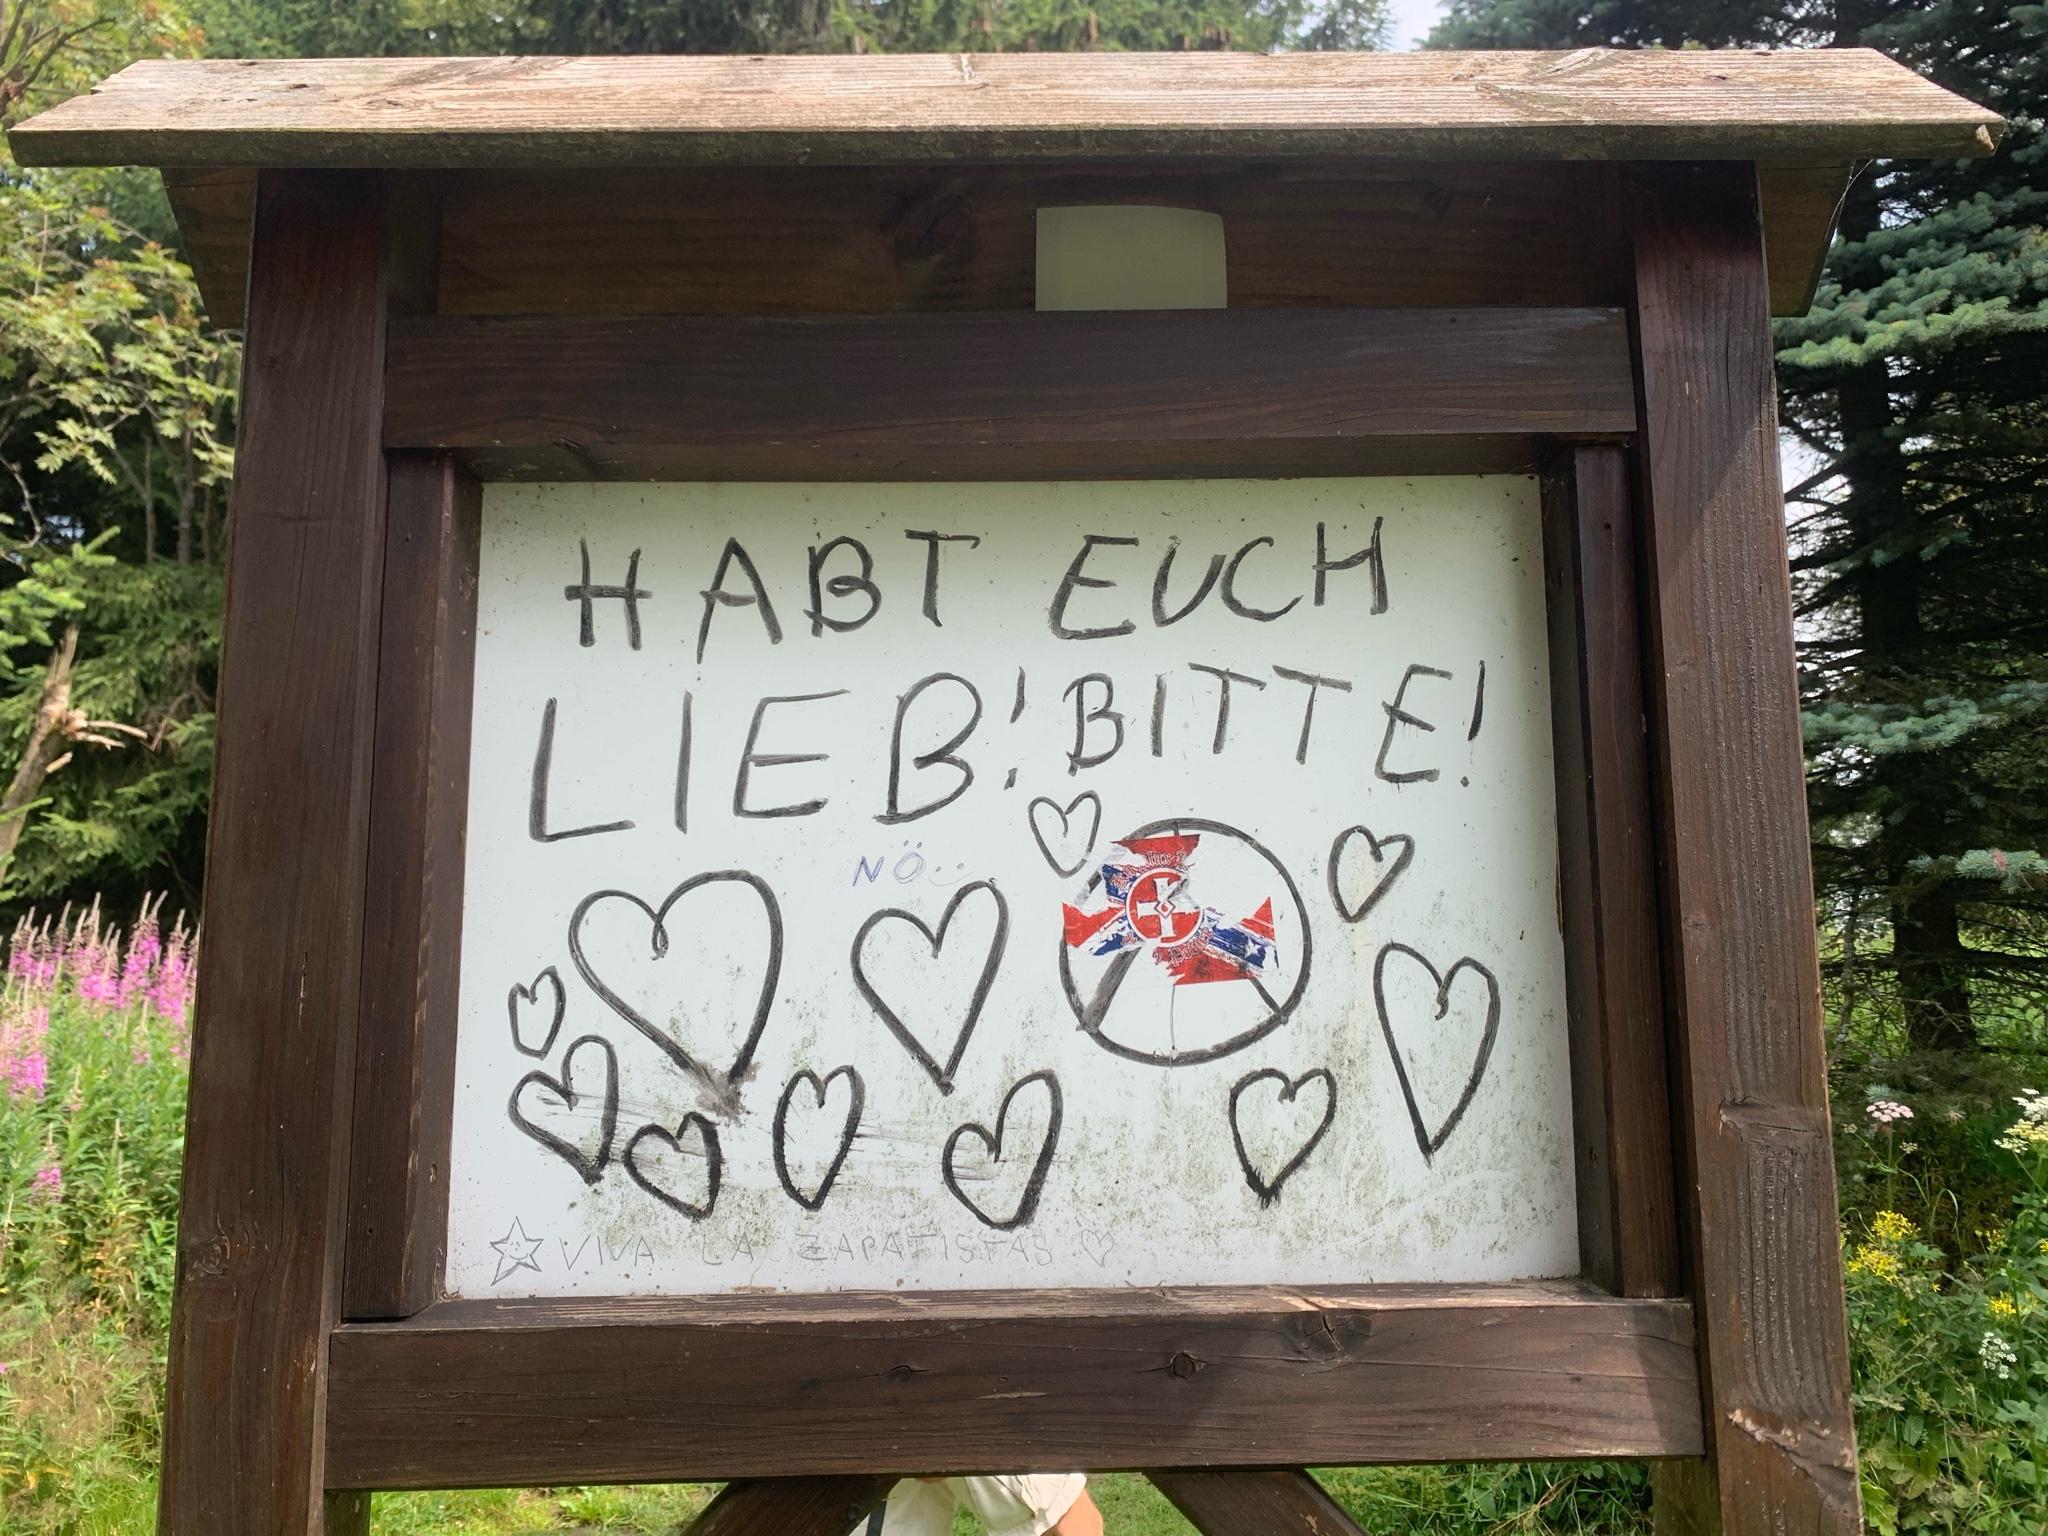 HABT EUCH
LIEB! BITTE!
NÖ
VIVA LA ZAPATISTAS